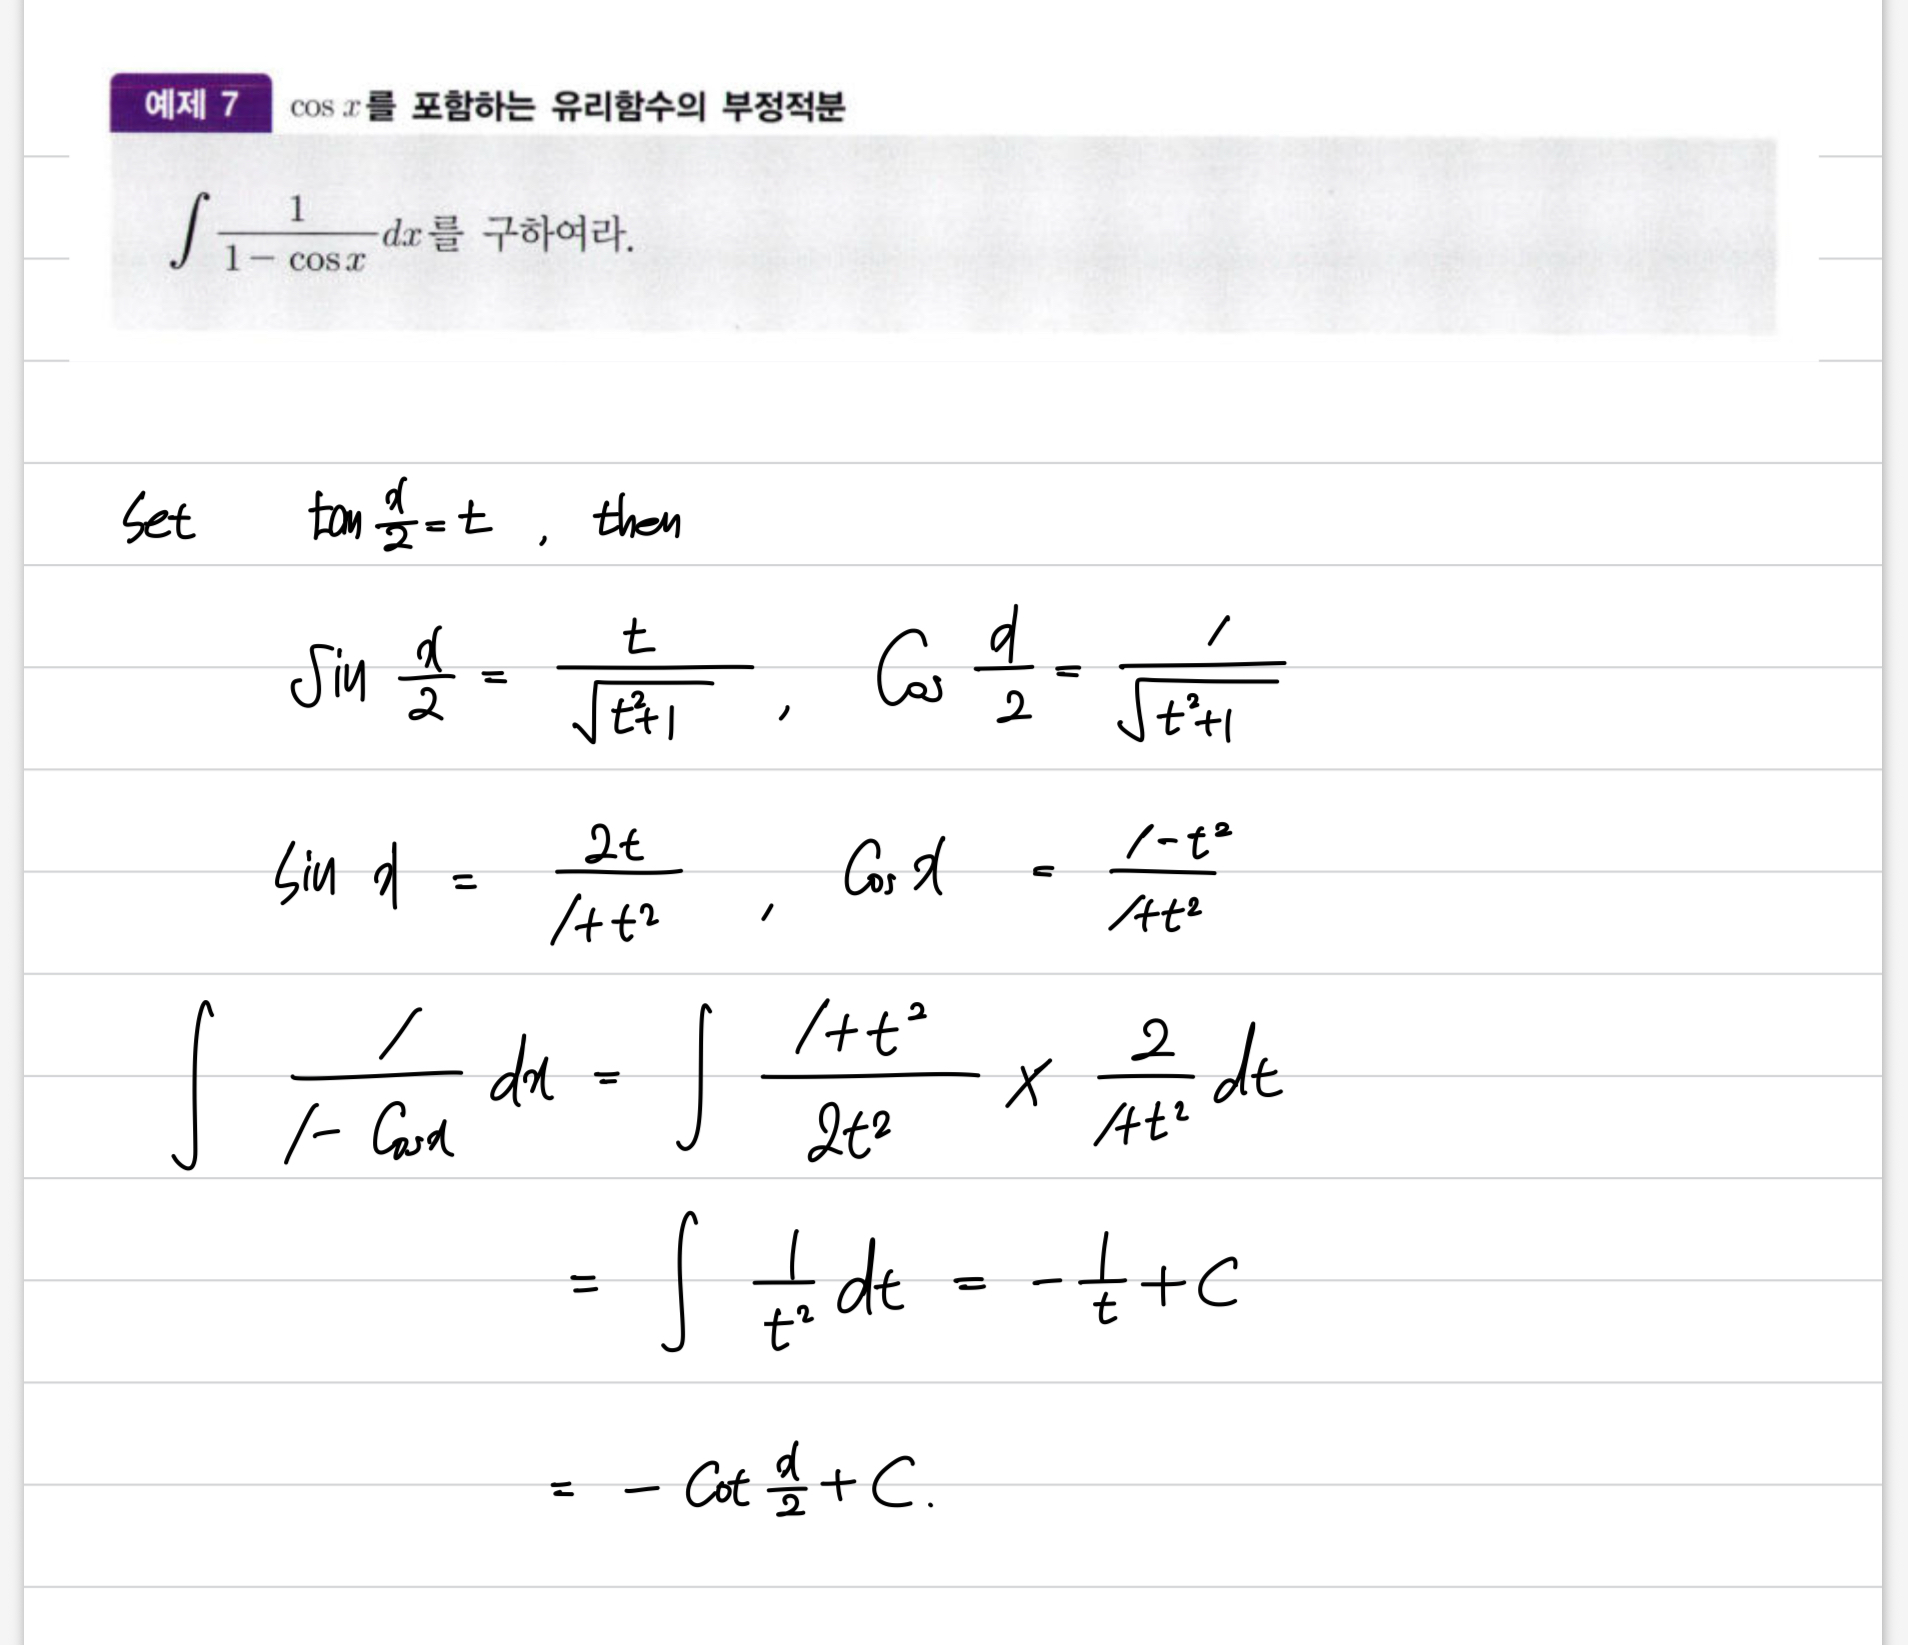 예제 7 cos x를 포함하는 유리함수의 부정적분
∫ 1/(1 − cos x) dx를 구하여라.
Set tan x/2 = t , then
Sin x/2 = t/√(t²+1) , Cos x/2 = 1/√(t²+1)
Sin x = 2t/(1+t²) , Cos x = (1-t²)/(1+t²)
∫ 1/(1- Cos x) dx = ∫ (1+t²)/(2t²) × 2/(1+t²) dt
= ∫ 1/t² dt = - 1/t + C
= - Cot x/2 + C.